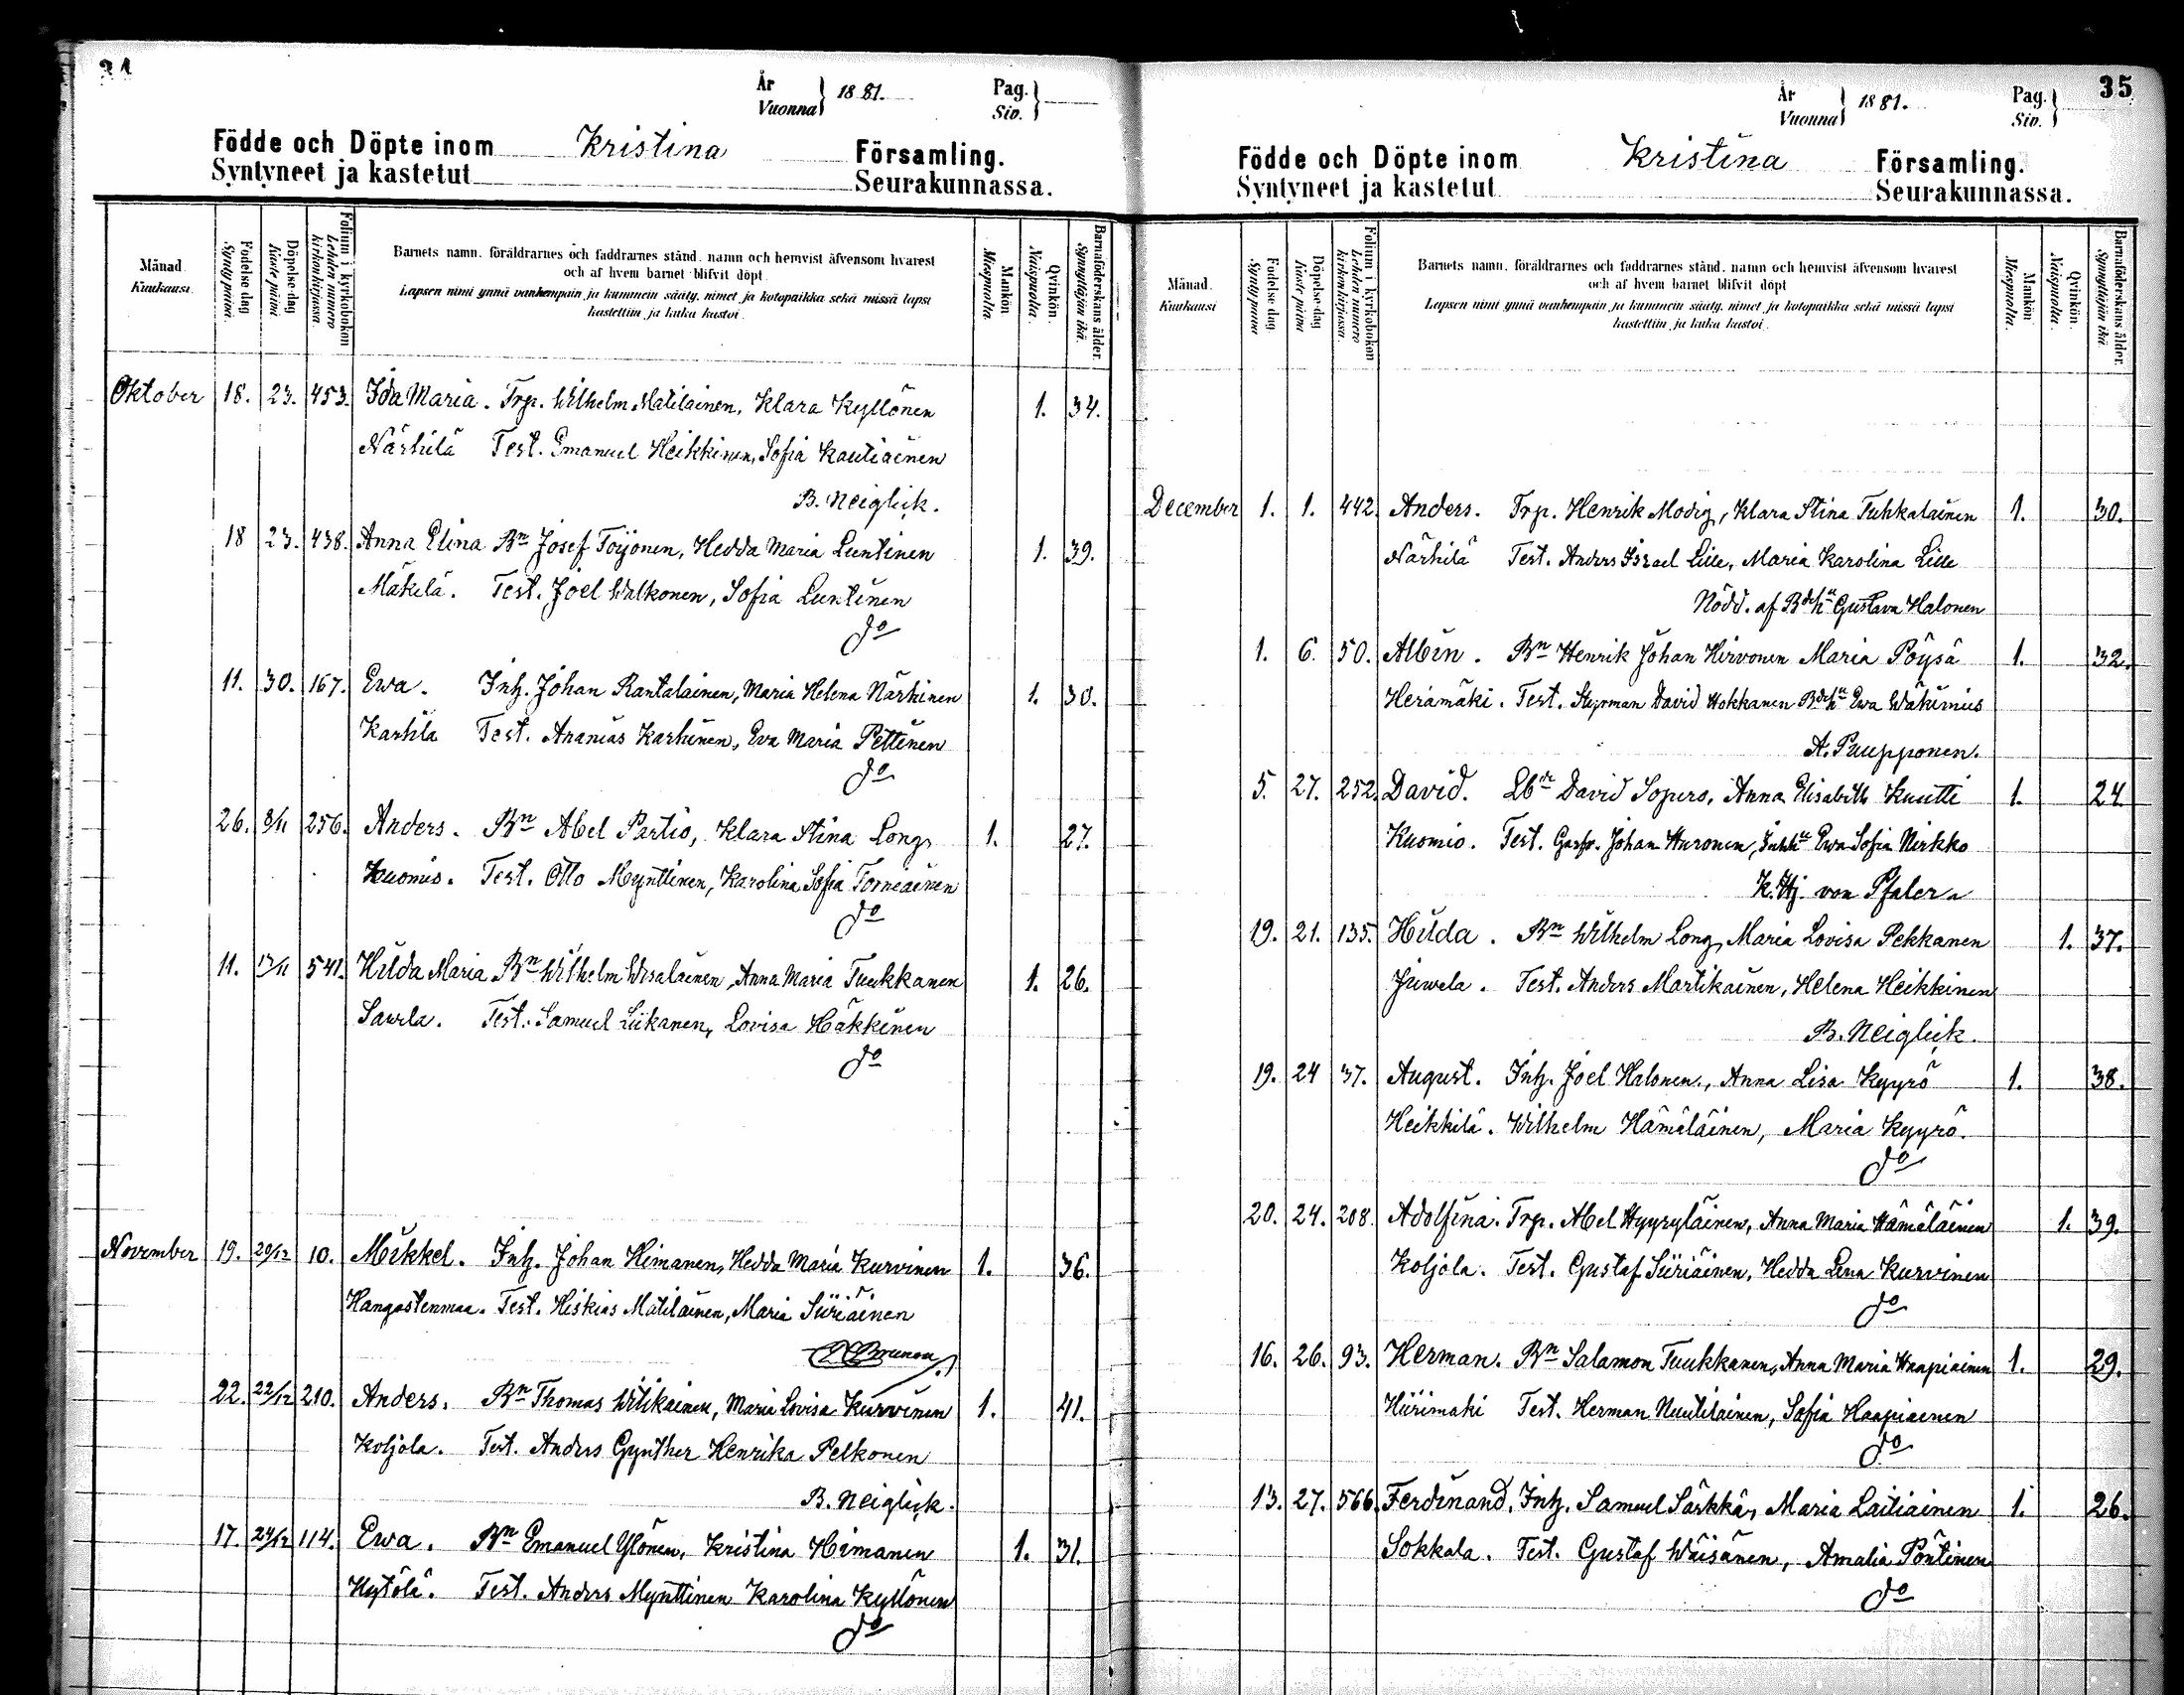 34
År Vuonna 1881. Pag. Siv.
Födde och Döpte inom Kristina Församling.
Syntyneet ja kastetut Seurakunnassa.
Månad. Kuukausi.
Födelse dag Synty päivä.
Döpelse-dag Kaste päivä
Folium i kyrkoboken Lehden numero kirkonkirjassa.
Barnets namn. föräldrarnes och faddrarnes stånd. namn och hemvist äfvensom hvarest
och af hvem barnet blifvit döpt.
Lapsen nimi ynnä vanhempain ja kummein sääty. nimet ja kotopaikka sekä missä lapsi
kastettiin ja kuka kastoi.
Mankön Miespuolia.
Qvinkön. Naispuolia.
Barnaföderskans ålder. Synnyttäjän ikä.
Oktober 18. 23. 453. Ida Maria. Trp. Wilhelm Matilainen, Klara Kyllönen 1. 34.
Närhilä Test. Emanuel Heikkinen, Sofia Kautiainen
B. Neiglick.
18 23. 438. Anna Elina Bn Josef Toijonen, Hedda Maria Luntinen 1. 39.
Mäkelä. Test. Joel Walkonen, Sofia Luntinen
do
11. 30. 167. Ewa. Inh. Johan Rantalainen, Maria Helena Närhinen 1. 30.
Karhila Test. Ananias Karhinen, Eva Maria Pettinen
do
26. 8/11 256. Anders. Bn Abel Partio, Klara Stina Long, 1. 27.
Kuomio. Test. Otto Mynttinen, Karolina Sofia Torniainen
do
11. 13/11 541. Hilda Maria Bn Wilhelm Wesalainen, Anna Maria Tuukkanen 1. 26.
Saurla. Test. Samuel Liikanen, Lovisa Häkkinen
do
November 19. 20/12 10. Mikkel. Inh. Johan Himanen, Hedda Maria Kurvinen 1. 36.
Hangastenmaa. Test. Hiskias Matilainen, Maria Siiriäinen
22. 22/12 210. Anders. Bn Thomas Witikainen, Maria Lovisa Kurvinen 1. 41.
Koljola. Test. Anders Gynther Henrika Pelkonen
B. Neiglick.
17. 24/12 114. Ewa. Bn Emanuel Ylönen, Kristina Himanen 1. 31.
Hytölä. Test. Anders Mynttinen Karolina Kyllönen
do
35
År Vuonna 1881. Pag. Siv.
Födde och Döpte inom Kristina Församling.
Syntyneet ja kastetut Seurakunnassa.
Månad. Kuukausi
Födelse dag Synty päivä
Döpelse-dag Kaste päivä
Folium i kyrkoboken Lehden numero kirkonkirjassa.
Barnets namn. föräldrarnes och faddrarnes stånd. namn och hemvist äfvensom hvarest
och af hvem barnet blifvit döpt
Lapsen nimi ynnä vanhempain ja kummein sääty. nimet ja kotopaikka sekä missä lapsi
kastettiin ja kuka kastoi.
Mankön Miespuolia.
Qvinkön. Naispuolia.
Barnaföderskans ålder. Synnyttäjän ikä.
December 1. 1. 442. Anders. Trp. Henrik Modig, Klara Stina Tuhkalainen 1. 30.
Närhilä Test. Anders Israel Lille, Maria Karolina Lille
Nödd. af Gustava Halonen
1. 6. 50. Albin. Bn Henrik Johan Hirvonen Maria Pöysä 1. 32.
Heramäki. Test. Styrman David Hokkanen Ewa
A. Puupponen.
5. 27. 252. David. David Sopero, Anna Elisabeth Kuutti 1. 24
Kuomio. Test. Johan Huronen, Ewa Sofia Nirkko
K. Hj. von Pfaler
19. 21. 135. Hilda. Bn Wilhelm Long, Maria Lovisa Pekkanen 1. 37.
Juwela. Test. Anders Martikainen, Helena Heikkinen
B. Neiglick.
19. 24 37. August. Inh. Joel Halonen, Anna Lisa Kyyrö 1. 38.
Heikkilä. Wilhelm Hämäläinen, Maria Kyyrö.
do
20. 24. 208. Adolfina. Trp. Abel Hyyryläinen, Anna Maria Hämäläinen 1. 39.
Koljola. Test. Gustaf Siiriäinen, Hedda Lena Kurvinen
do
16. 26. 93. Herman. Bn Salamon Tuukkanen, Anna Maria Haapiainen 1. 29.
Hiirimäki Test. Herman Nuutilainen, Sofia Haapiainen
do
13. 27. 566. Ferdinand. Inh. Samuel Särkkä, Maria Laitiainen 1. 26.
Sokkala. Test. Gustaf Wäisänen, Amalia Pöntinen
do